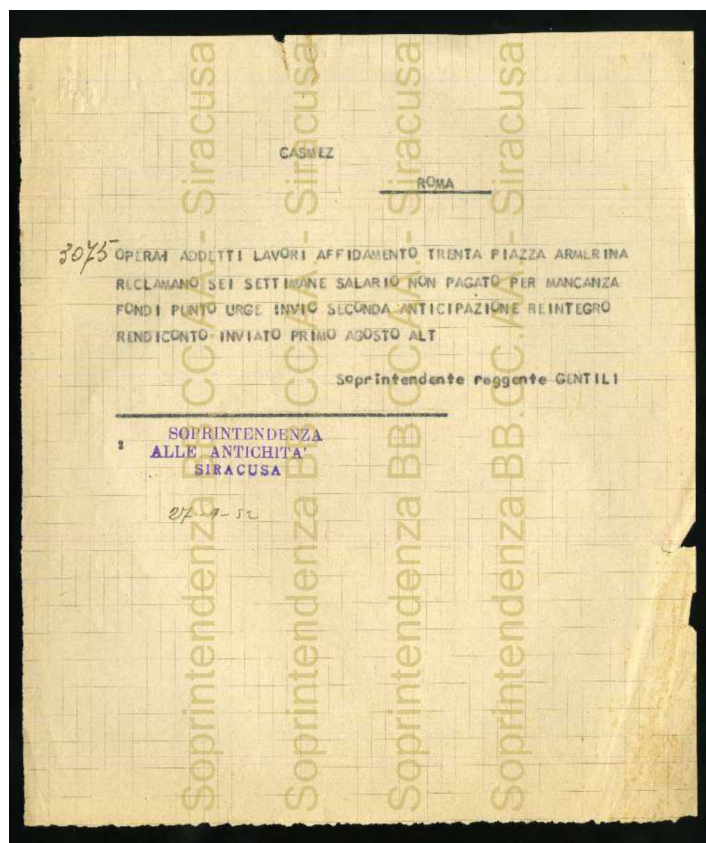 CASMEZ
ROMA
3075 OPERAI ADDETTI LAVORI AFFIDAMENTO TRENTA PIAZZA ARMERINA
RECLAMANO SEI SETTIMANE SALARIO NON PAGATO PER MANCANZA
FONDI PUNTO URGE INVIO SECONDA ANTICIPAZIONE REINTEGRO
RENDICONTO INVIATO PRIMO AGOSTO ALT
Soprintendente reggente GENTILI
SOPRINTENDENZA
ALLE ANTICHITA'
SIRACUSA
27-9-52
Soprintendenza BB.CC.AA. - Siracusa
Soprintendenza BB.CC.AA. - Siracusa
Soprintendenza BB.CC.AA. - Siracusa
Soprintendenza BB.CC.AA. - Siracusa